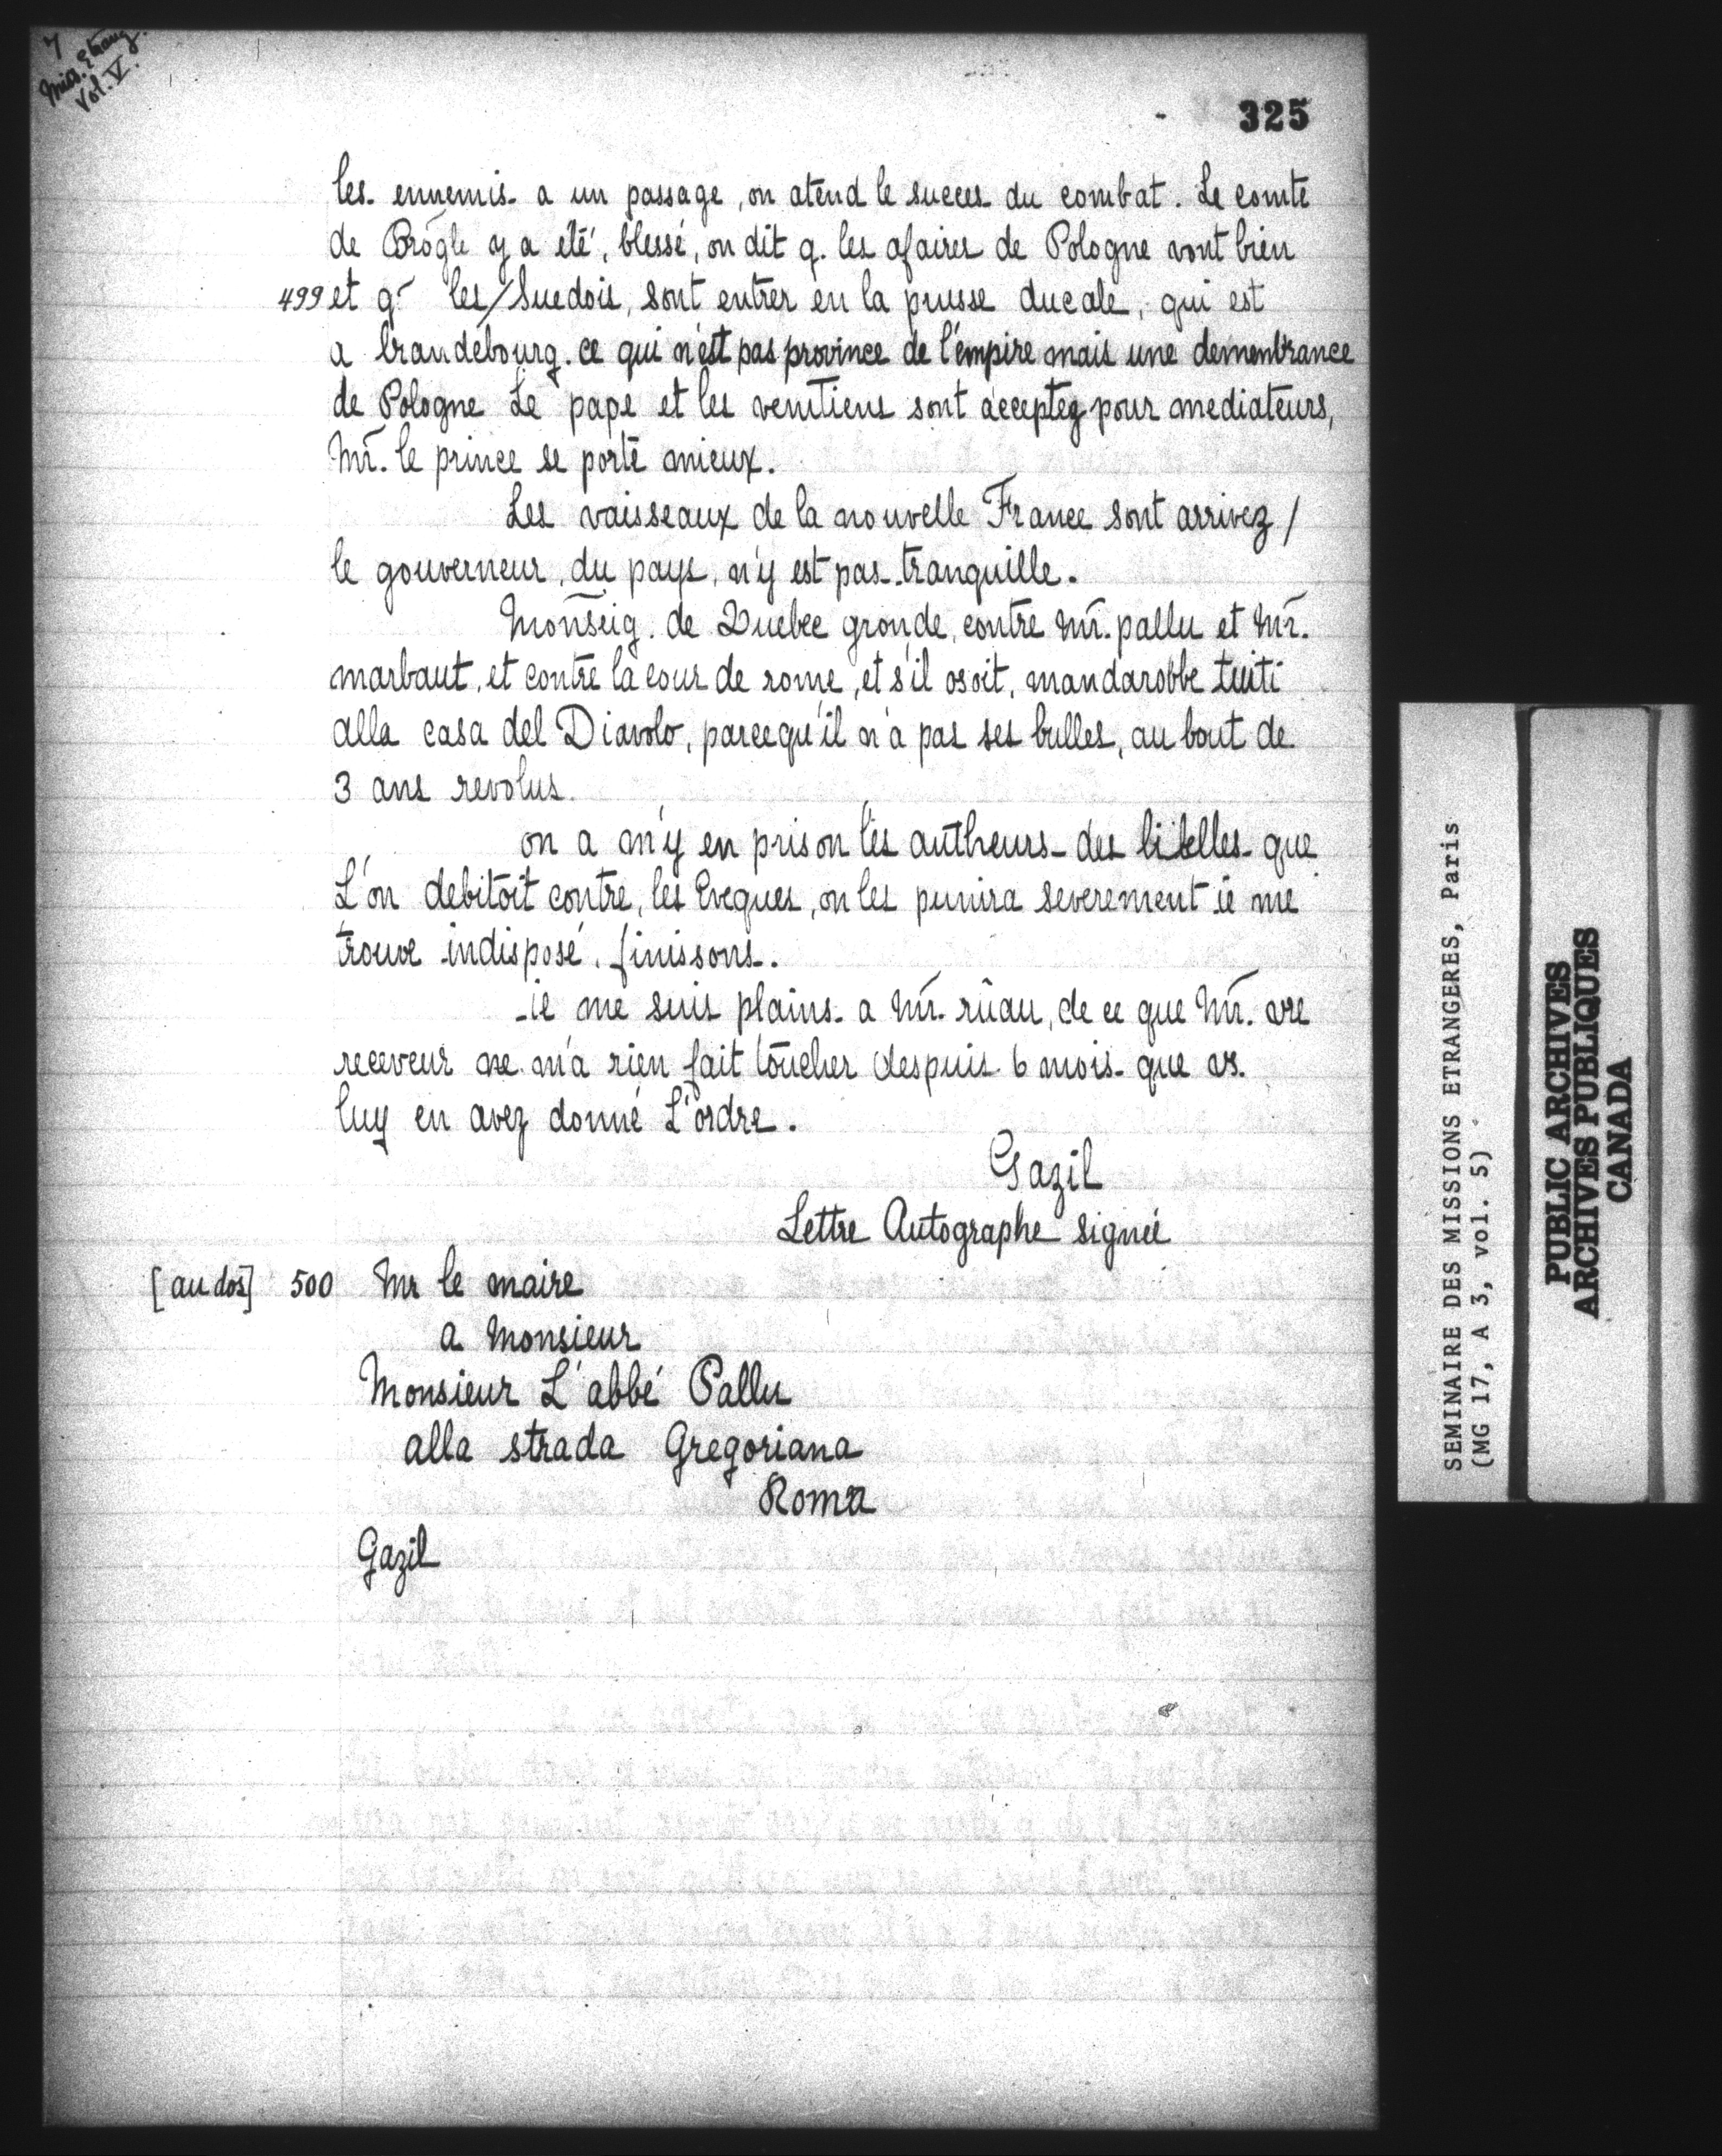 7
Miss. Etrang.
Vol. V.
325
les ennemis a un passage, on atend le succes du combat. Le comte
de Brogle y a eté, blessé, on dit q. les afaires de Pologne vont bien
499 et q. les/Suedois, sont entrer en la prusse ducale, qui est
a brandebourg. ce qui n'est pas province de l'empire mais une demembrance
de Pologne Le pape et les venitiens sont acceptez pour mediateurs,
Mr. le prince se porte mieux.
Les vaisseaux de la nouvelle France sont arrivez/
le gouverneur, du pays, n'y est pas tranquille.
Monseig. de Quebec gronde, contre Mr. pallu et Mr.
marbaut, et contre la cour de rome, et s'il osoit, mandarobbe tuiti
alla casa del Diavolo, parcequ'il n'a pas ses bulles, au bout de
3 ans revolus.
on a m'y en prison les autheurs des libelles que
L'on debitoit contre, les Eveques, on les punira severement ie me
trouve indisposé. finissons.
ie me suis plains a Mr. rûau, de ce que Mr. vre
receveur ne m'a rien fait toucher despuis 6 mois que vs.
luy en avez donné L'ordre.
Gazil
Lettre Autographe signée
[au dos] 500 Mr le maire
a Monsieur
Monsieur L'abbé Pallu
alla strada Gregoriana
Roma
Gazil
SEMINAIRE DES MISSIONS ETRANGERES, Paris
(MG 17, A 3, vol. 5)
PUBLIC ARCHIVES
ARCHIVES PUBLIQUES
CANADA